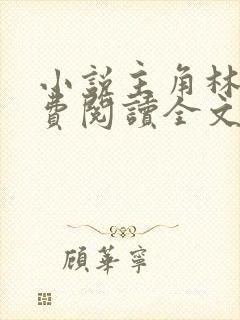 小說主角林
費閱讀全文
顧華寧